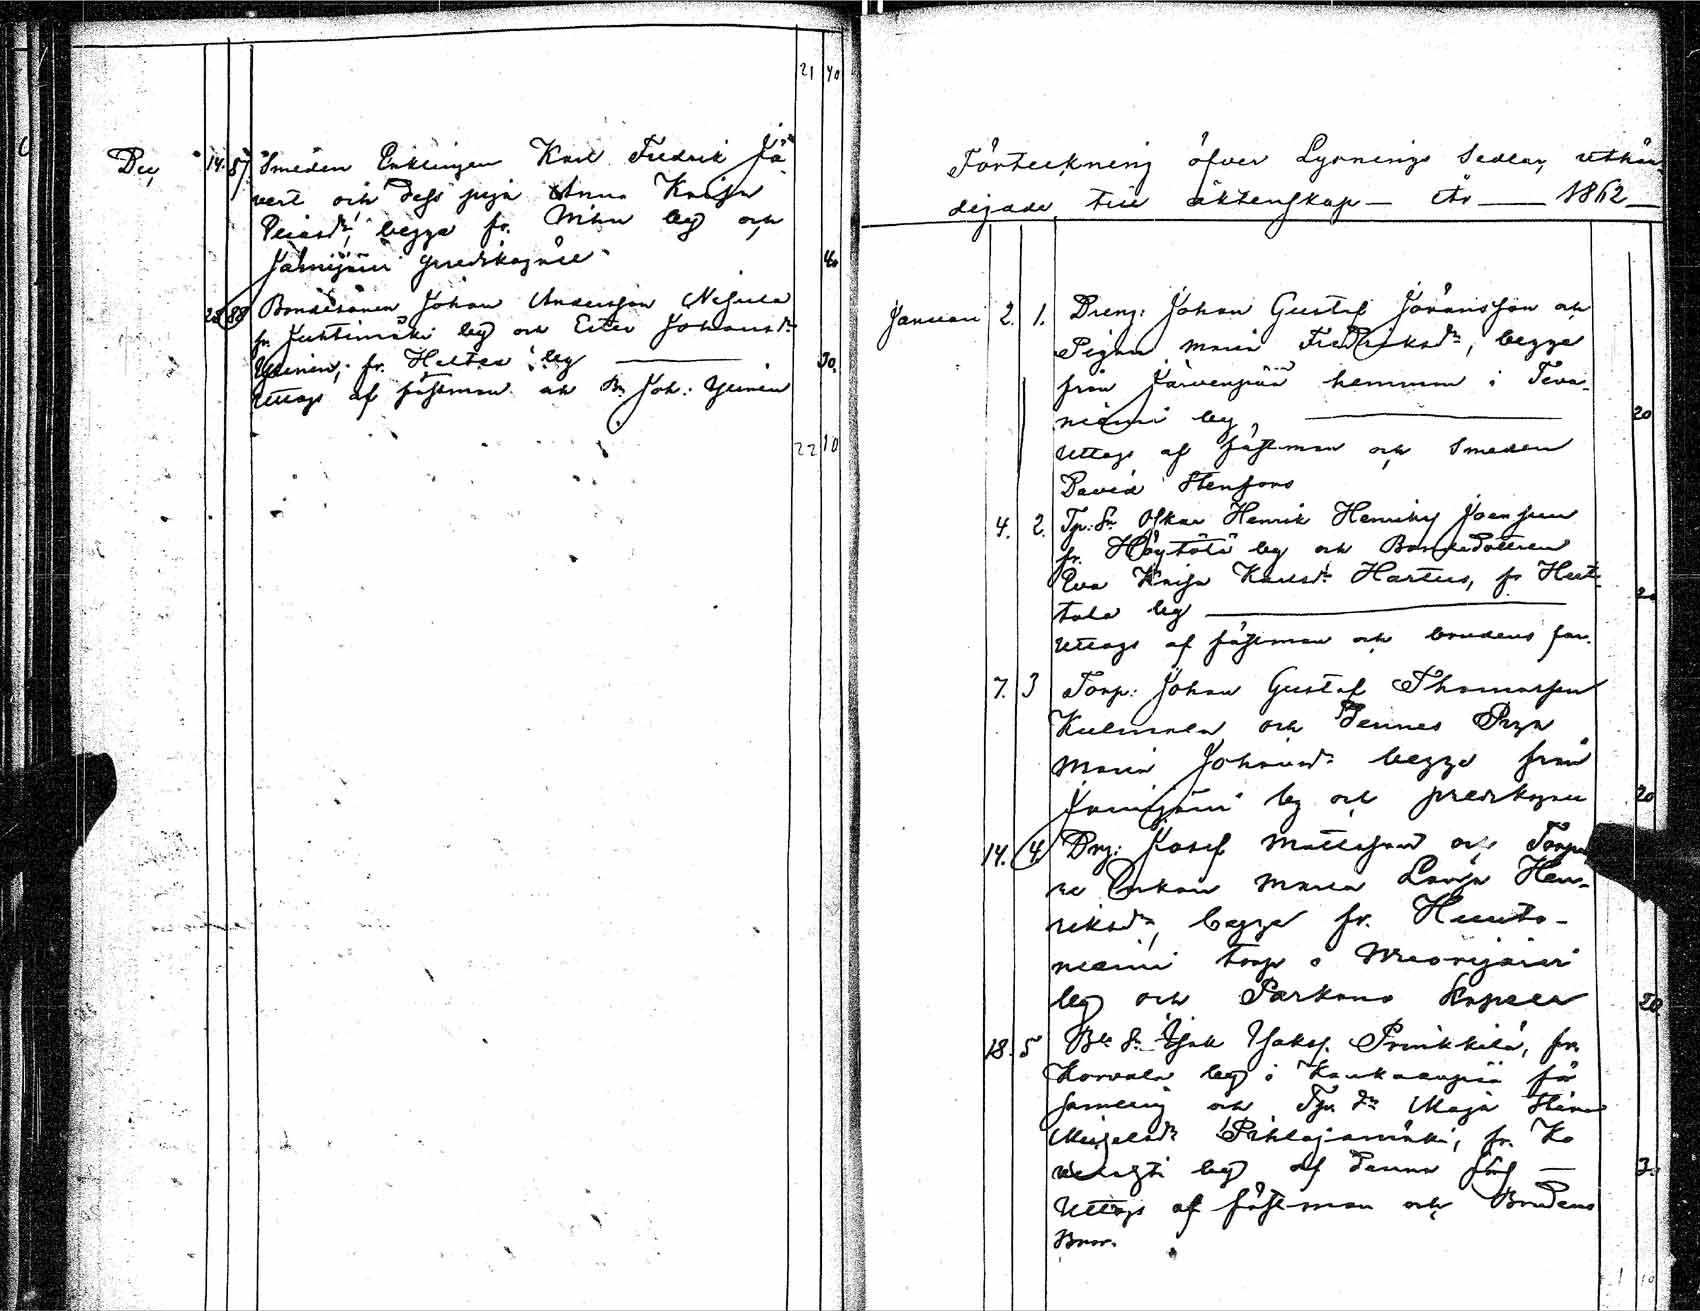 21 40
Dec, 14. 87 Smeden Enklingen Karl Fredrik Jä-
vert och dess piga Anna Kaisa
begge fr. by och
Jämijärvi predikogäll 40
28 88 Bondesonen Johan Andersson
fr. Juhtimäki by och Johansdr
Ylinen, fr. Heittos by 30
Uttags af fästman och Bn Joh: Ylinen
22 10
Förteckning öfver Lysnings Sedlar, uthän-
digade till äktenskap år 1862
Januari 2. 1. Dreng: Johan Gustaf Göransson och
Pigan Maria Fredriksdr, begge
från Järvenpää hemman i Teva-
niemi by, 20
Uttags af fästman och Smeden
David Stenfors
4. 2. Tp: Sn Oskar Henrik
fr. Höytölä by och Bondedottren
Eva Kaisa Karlsdr Hartus, fr
by 20
Uttags af fästman och brudens far.
7. 3 Torp: Johan Gustaf Thomasson
Kulmala och dennes Piga
Maria Johansdr begge från
Jämijärvi by och predikogäll 20
14. 4 Drg: Josef Mattsson och Torpa-
re Enkan Maria Lovisa Hen-
riksdr, begge fr.
niemi torp i
by och Parkano Kapell 20
18. 5 Bde Sn Isak Isaks. Prinkkilä, fr.
Korvala by i Kankaanpää för
samling och Tp. dr Maja Stina
Mickelsdr Pihlajamäki, fr. Ko
by af denna förs 30
Uttags af fästman och Brudens
Bror.
1 10